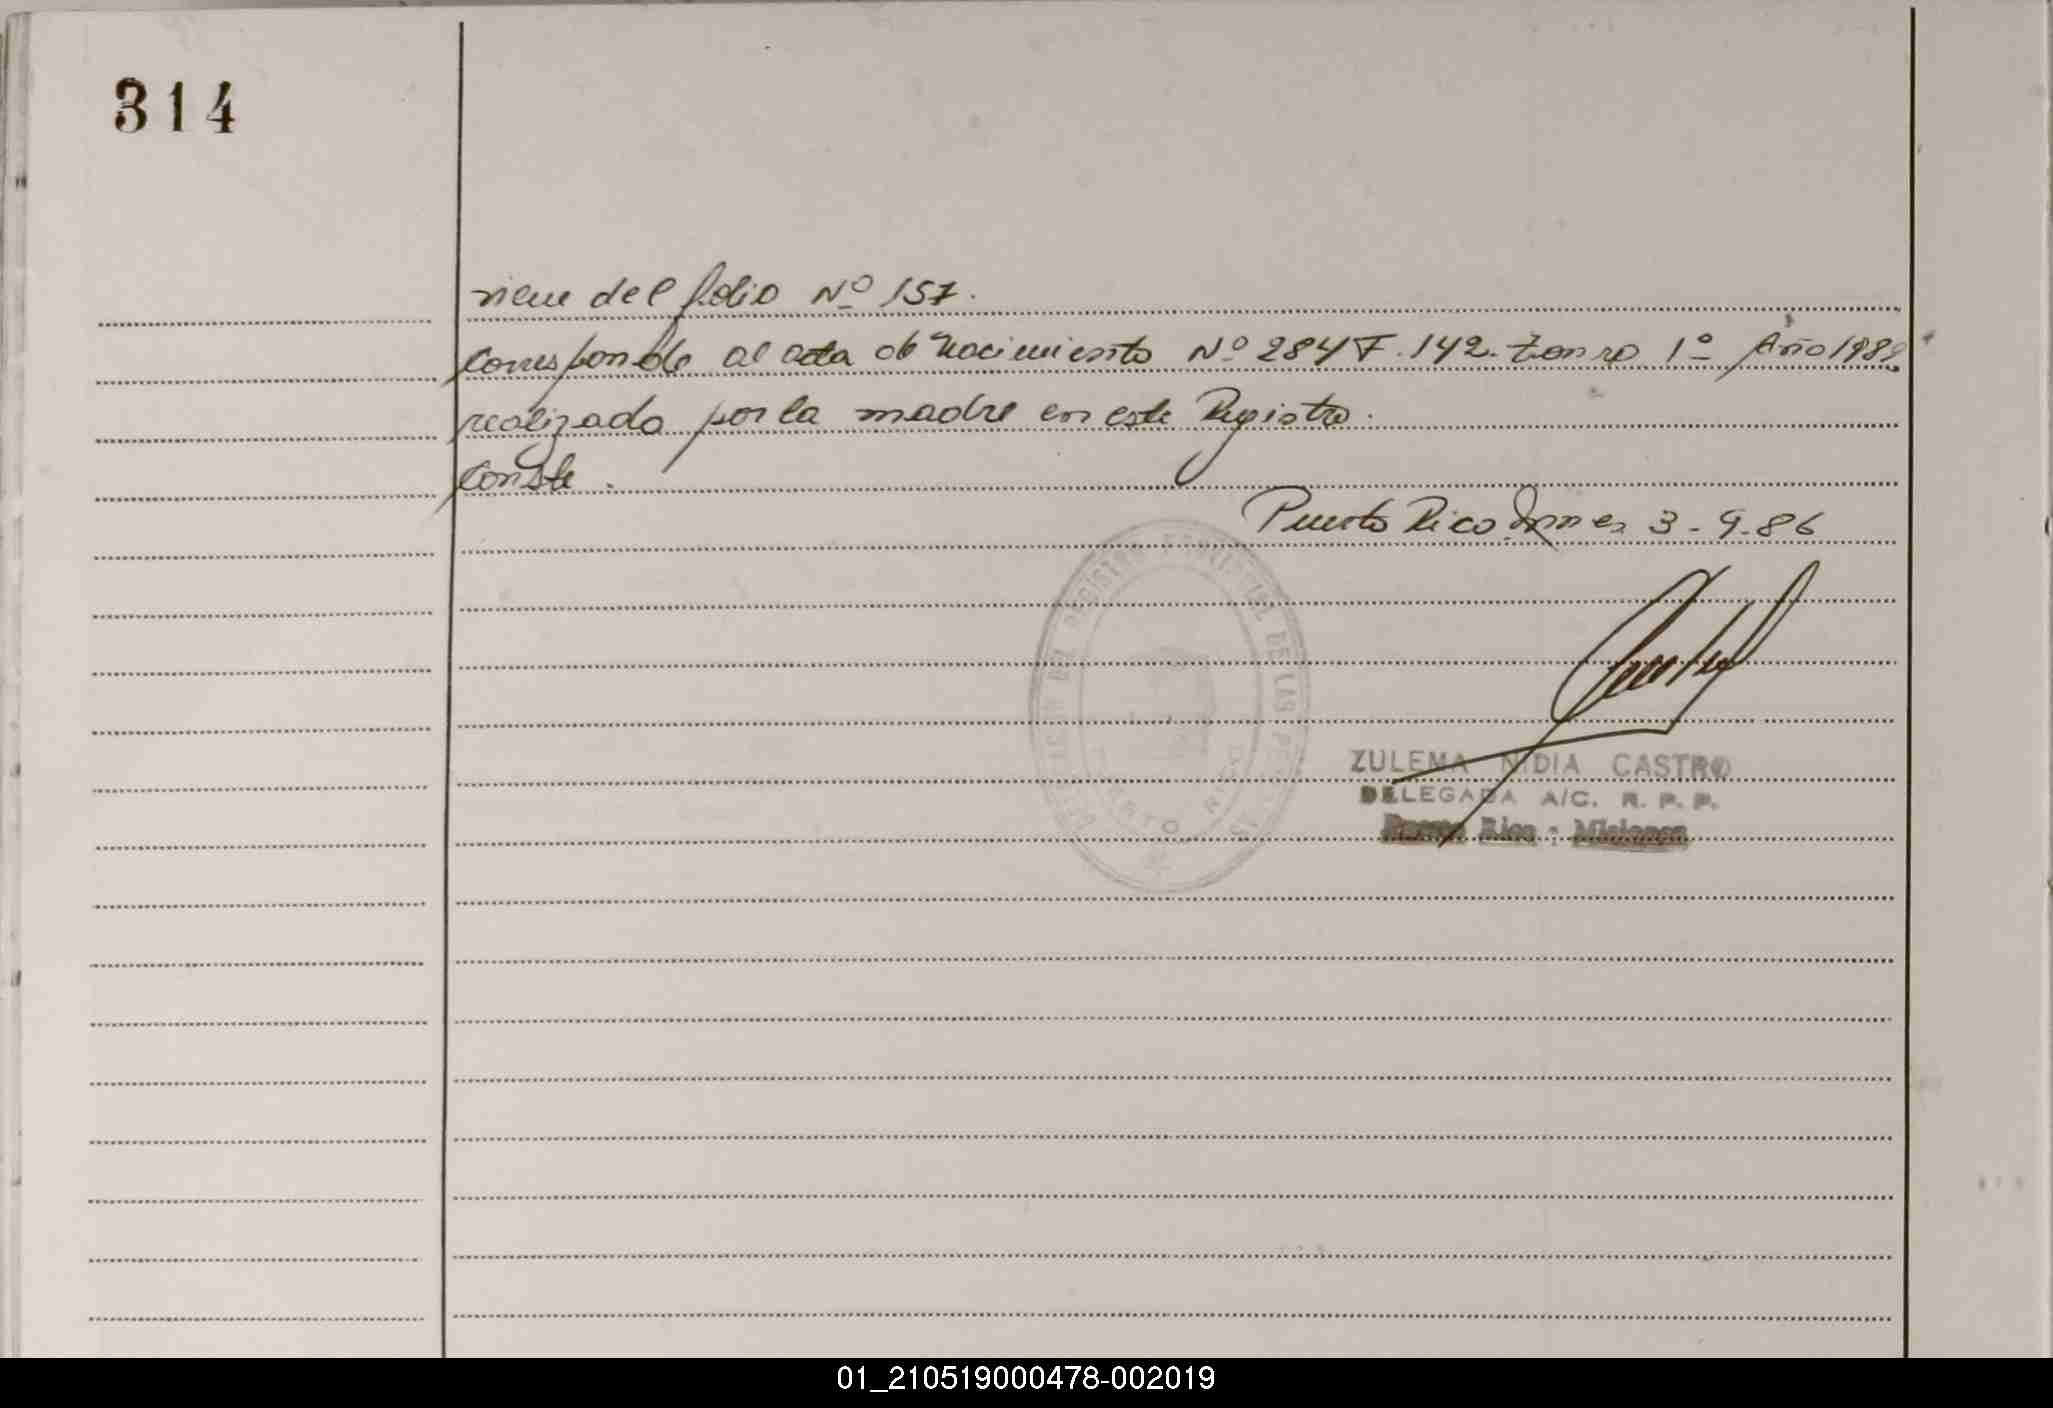 314
viene del folio Nº 157.
Corresponde al acta de Nacimiento Nº 284 F. 142. Tomo 1º Año 198
realizado por la madre en este Registro.
Conste.
Puerto Rico, Mnes 3-9-86
DEL REGISTRO PROVINCIAL DE LAS PERSONAS
PUERTO RICO
ZULEMA NIDIA CASTRO
DELEGADA A/C. R. P. P.
Puerto Rico - Misiones
01_210519000478-002019